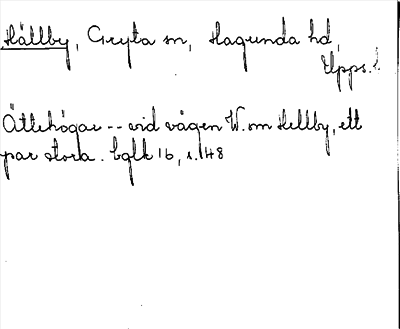 Hällby, Gryta sn, Hagunda hd,
Upps. l.
Ättehögar -- vid vägen W. om Hellby, ett
par stora. Bglk 16, s. 48